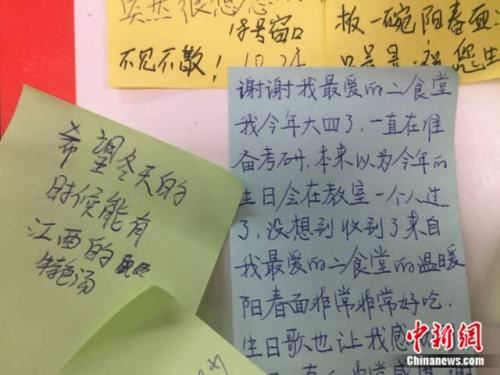 突然很想您
13号窗口
不见不散！10.24
板一碗阳春面:
您生
希望冬天的
时候能有
江西的
特色汤
谢谢我最爱的二食堂
我今年大四了，一直在准
备考研，本来以为今年的
生日会在教室一个人过
了，没想到收到了来自
我最爱的二食堂的温暖
阳春面非常非常好吃，
生日歌也让我感
中新网
Chinanews.com